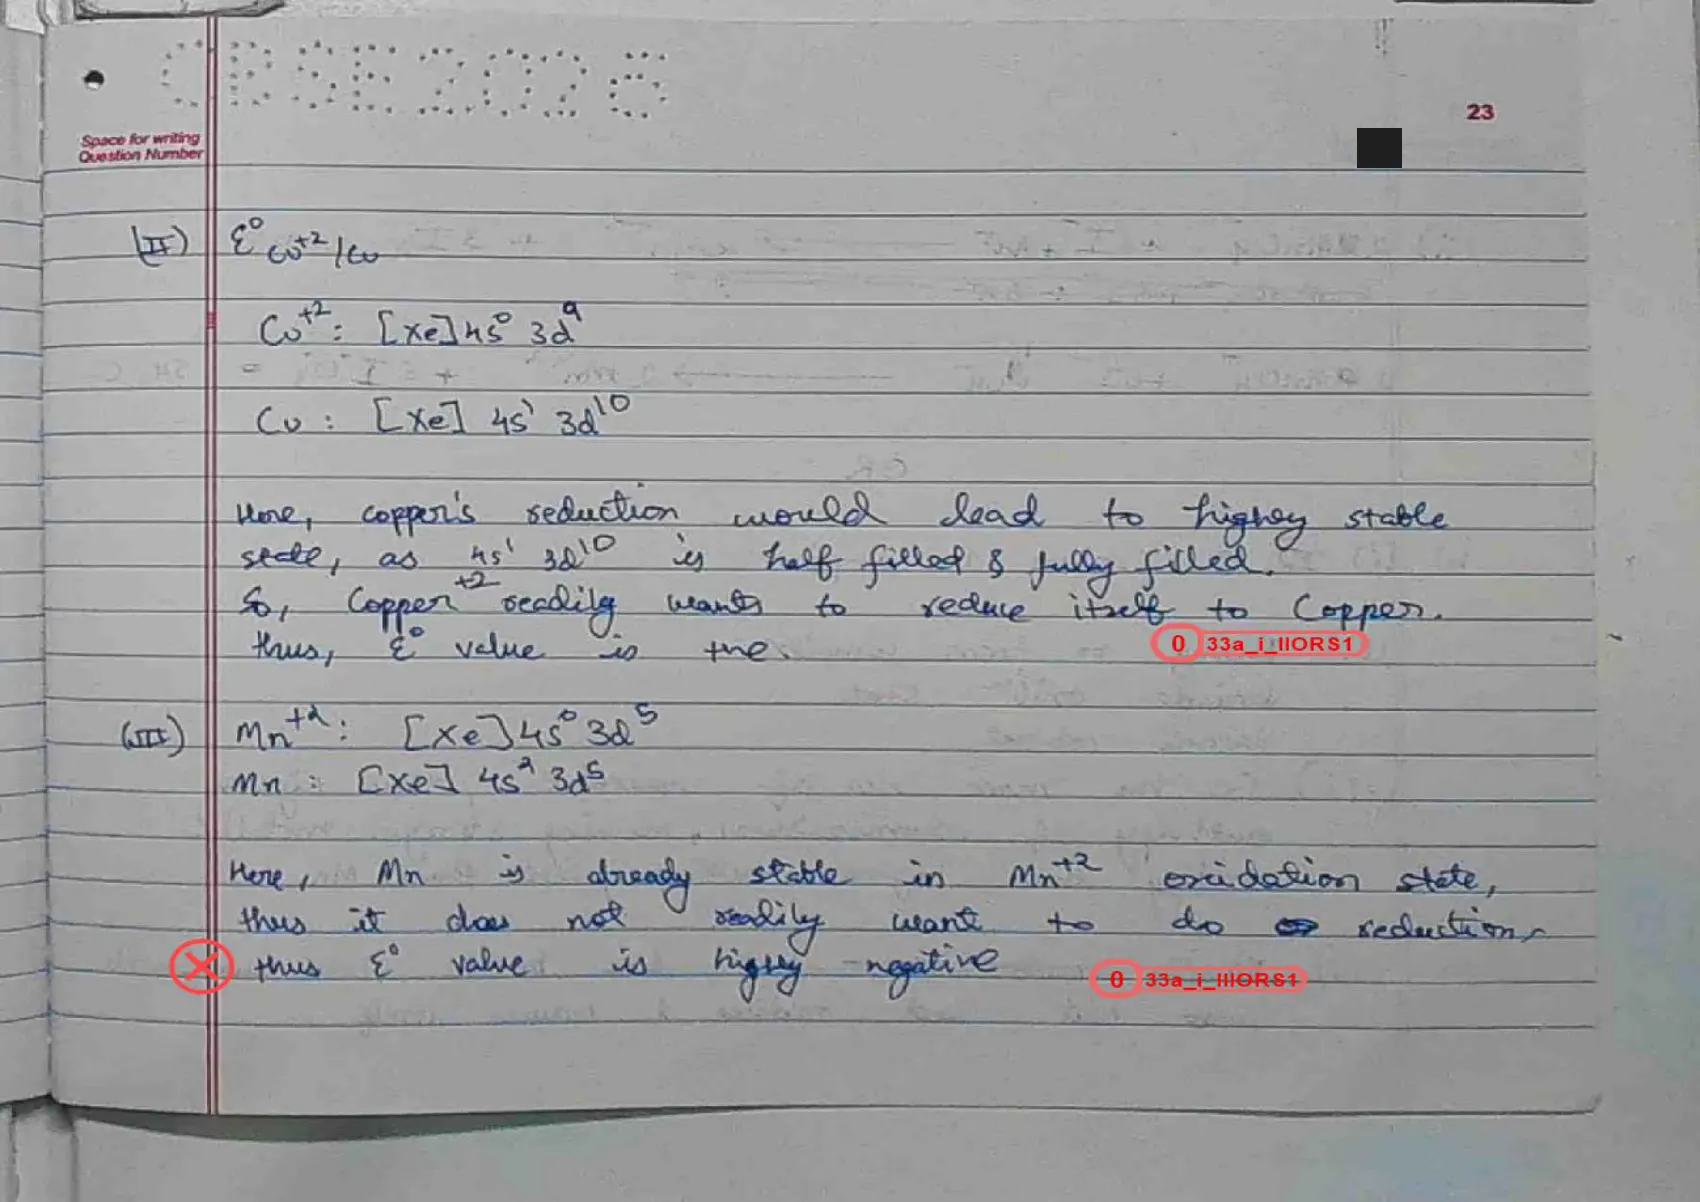 CBSE2026
23
Space for writing
Question Number
(II) ε⁰ Cu⁺²/Cu
Cu⁺² : [Xe] 4s⁰ 3d⁹
Cu : [Xe] 4s¹ 3d¹⁰
Here, copper's reduction would lead to highly stable
state, as 4s¹ 3d¹⁰ is half filled & fully filled.
So, Copper⁺² readily wants to reduce itself to Copper.
thus, ε⁰ value is +ve.
0 33a_i_IIORS1
(III) Mn⁺² : [Xe] 4s⁰ 3d⁵
Mn : [Xe] 4s² 3d⁵
Here, Mn is already stable in Mn⁺² oxidation state,
thus it does not readily want to do reduction,
thus ε⁰ value is highly negative
0 33a_i_IIIORS1